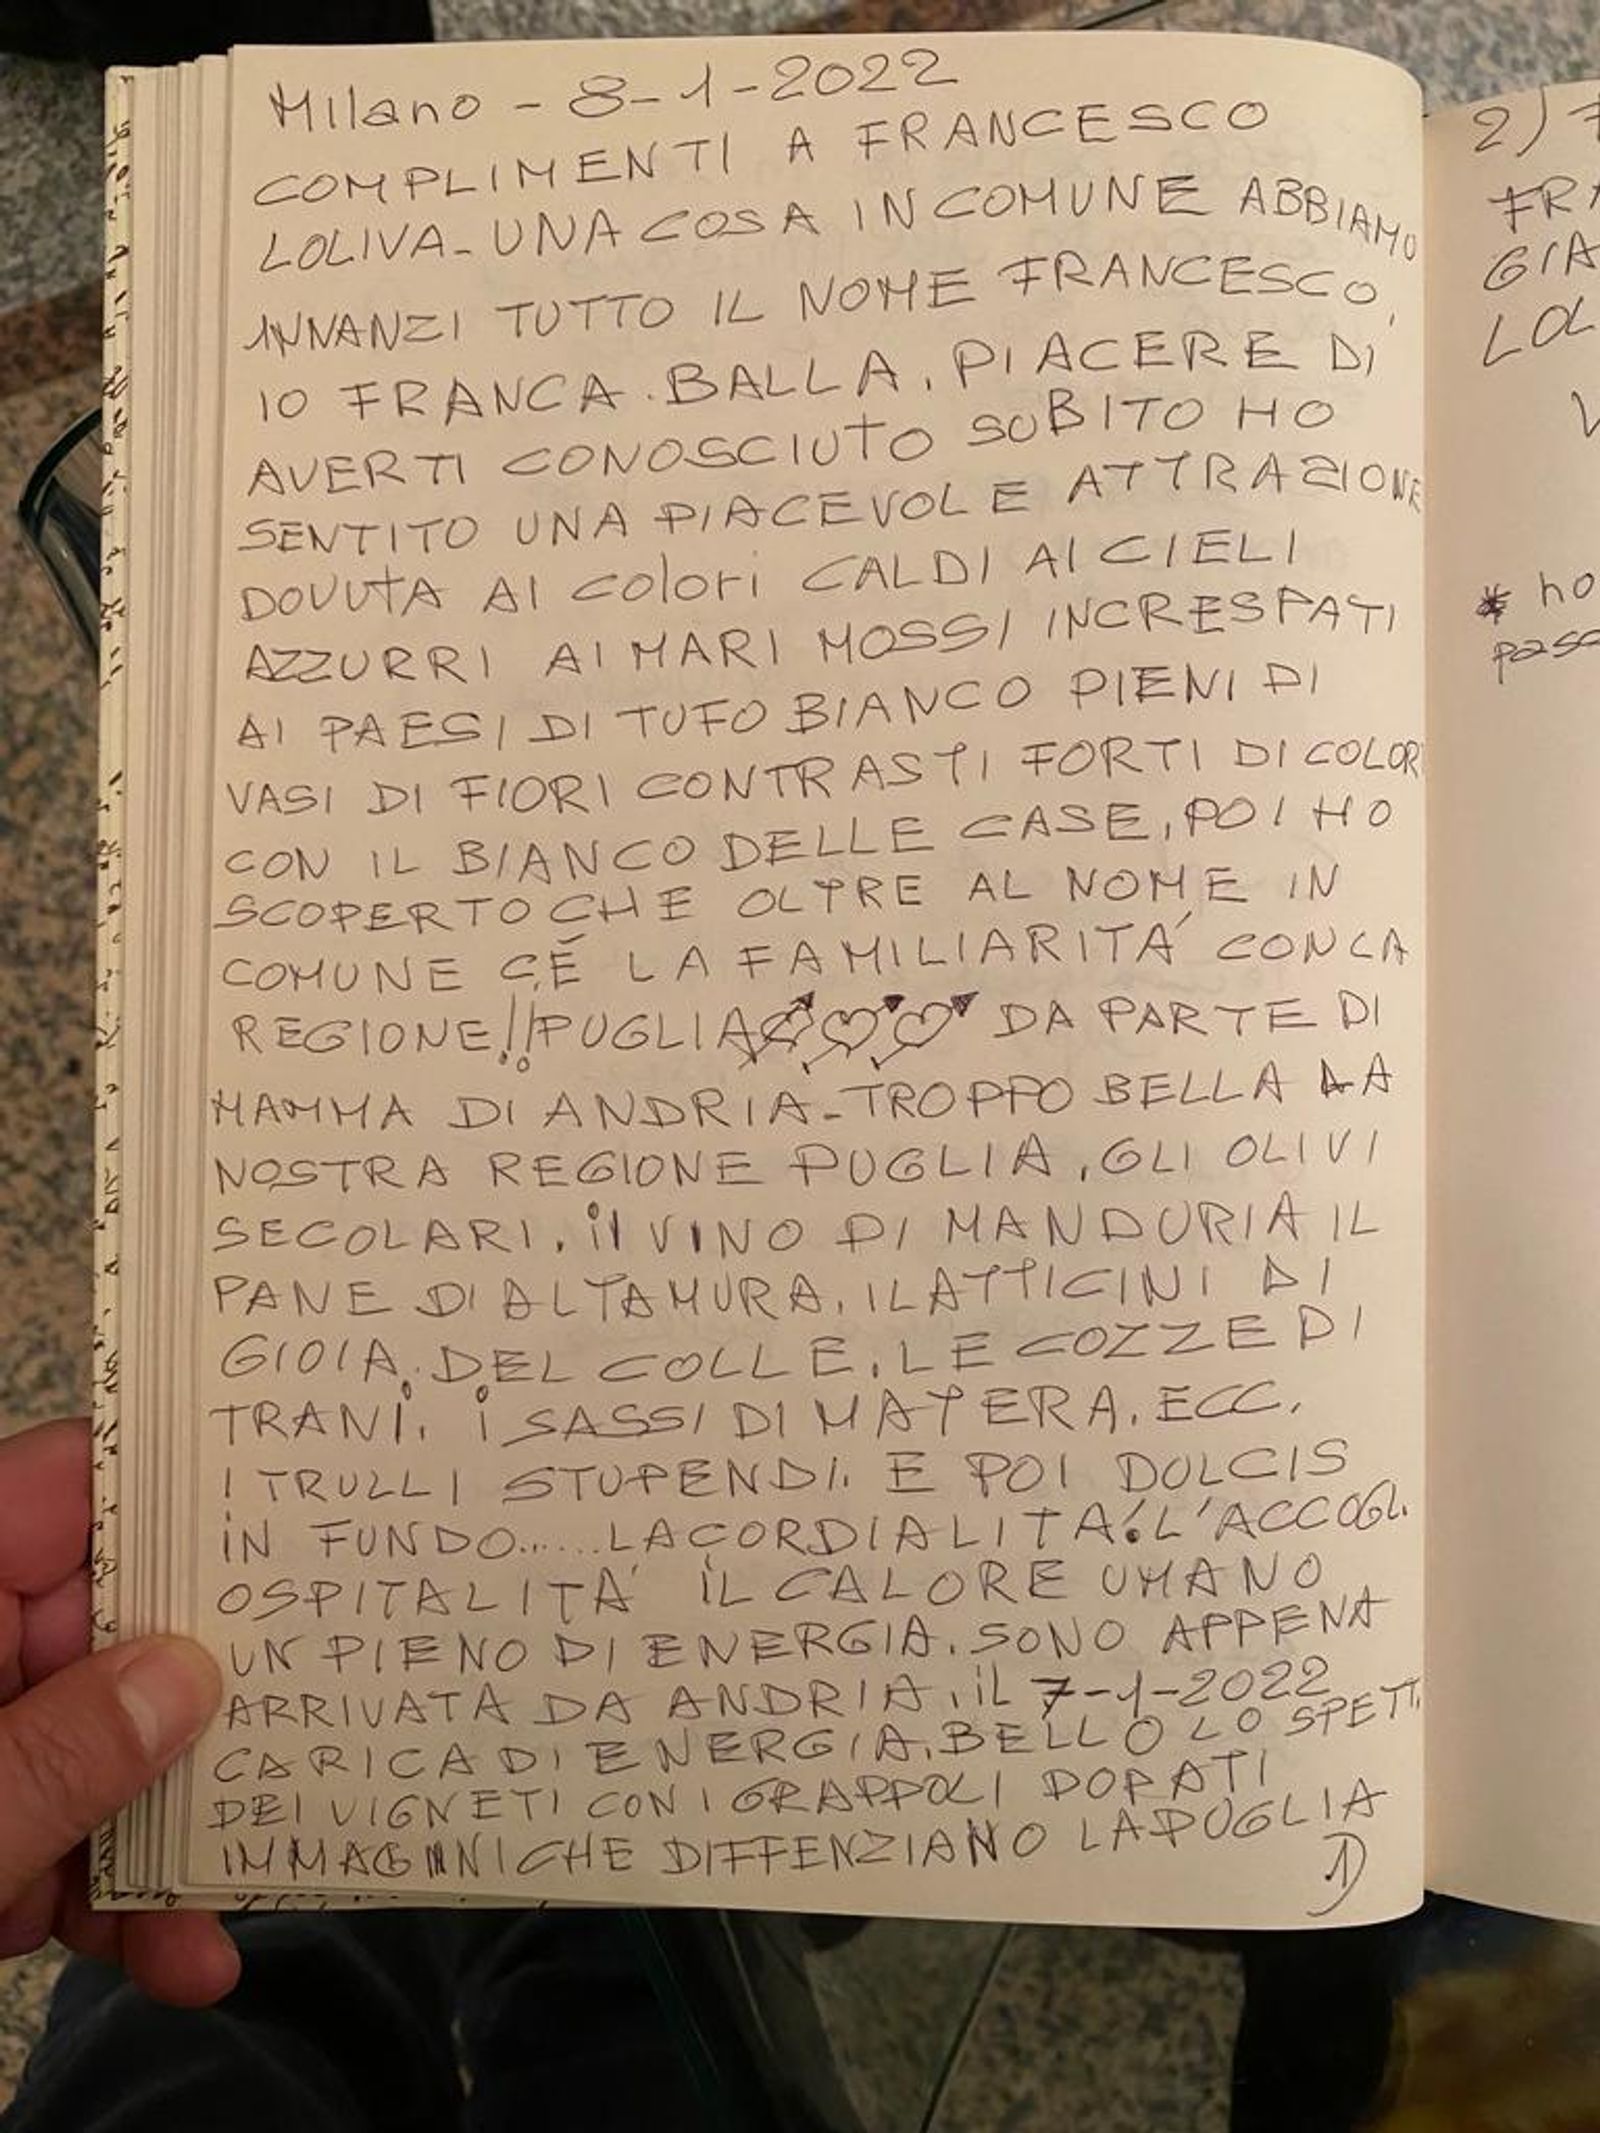 Milano - 8-1-2022
COMPLIMENTI A FRANCESCO
LOLIVA - UNA COSA IN COMUNE ABBIAMO
INNANZI TUTTO IL NOME FRANCESCO,
IO FRANCA. BALLA, PIACERE DI
AVERTI CONOSCIUTO SUBITO HO
SENTITO UNA PIACEVOLE ATTRAZIONE
DOVUTA AI colori CALDI AI CIELI
AZZURRI AI MARI MOSSI INCRESPATI
AI PAESI DI TUFO BIANCO PIENI DI
VASI DI FIORI CONTRASTI FORTI DI COLORI
CON IL BIANCO DELLE CASE, POI HO
SCOPERTO CHE OLTRE AL NOME IN
COMUNE C'É LA FAMILIARITÁ CON LA
REGIONE!! PUGLIA DA PARTE DI
MAMMA DI ANDRIA - TROPPO BELLA LA
NOSTRA REGIONE PUGLIA, GLI OLIVI
SECOLARI, il VINO DI MANDURIA IL
PANE DI ALTAMURA, I LATTICINI DI
GIOIA. DEL COLLE, LE COZZE DI
TRANI, i SASSI DI MATERA, ECC.
I TRULLI STUPENDI. E POI DULCIS
IN FUNDO........LA CORDIALITA! L'ACCOGL.
OSPITALITA' IL CALORE UMANO
UN PIENO DI ENERGIA. SONO APPENA
ARRIVATA DA ANDRIA, IL 7-1-2022
CARICA DI ENERGIA, BELLO LO SPETT.
DEI VIGNETI CON I GRAPPOLI DORATI
IMMAGINI CHE DIFFENZIANO LA PUGLIA
1)
2)
FRA
GIA
LOL
* ho
pass